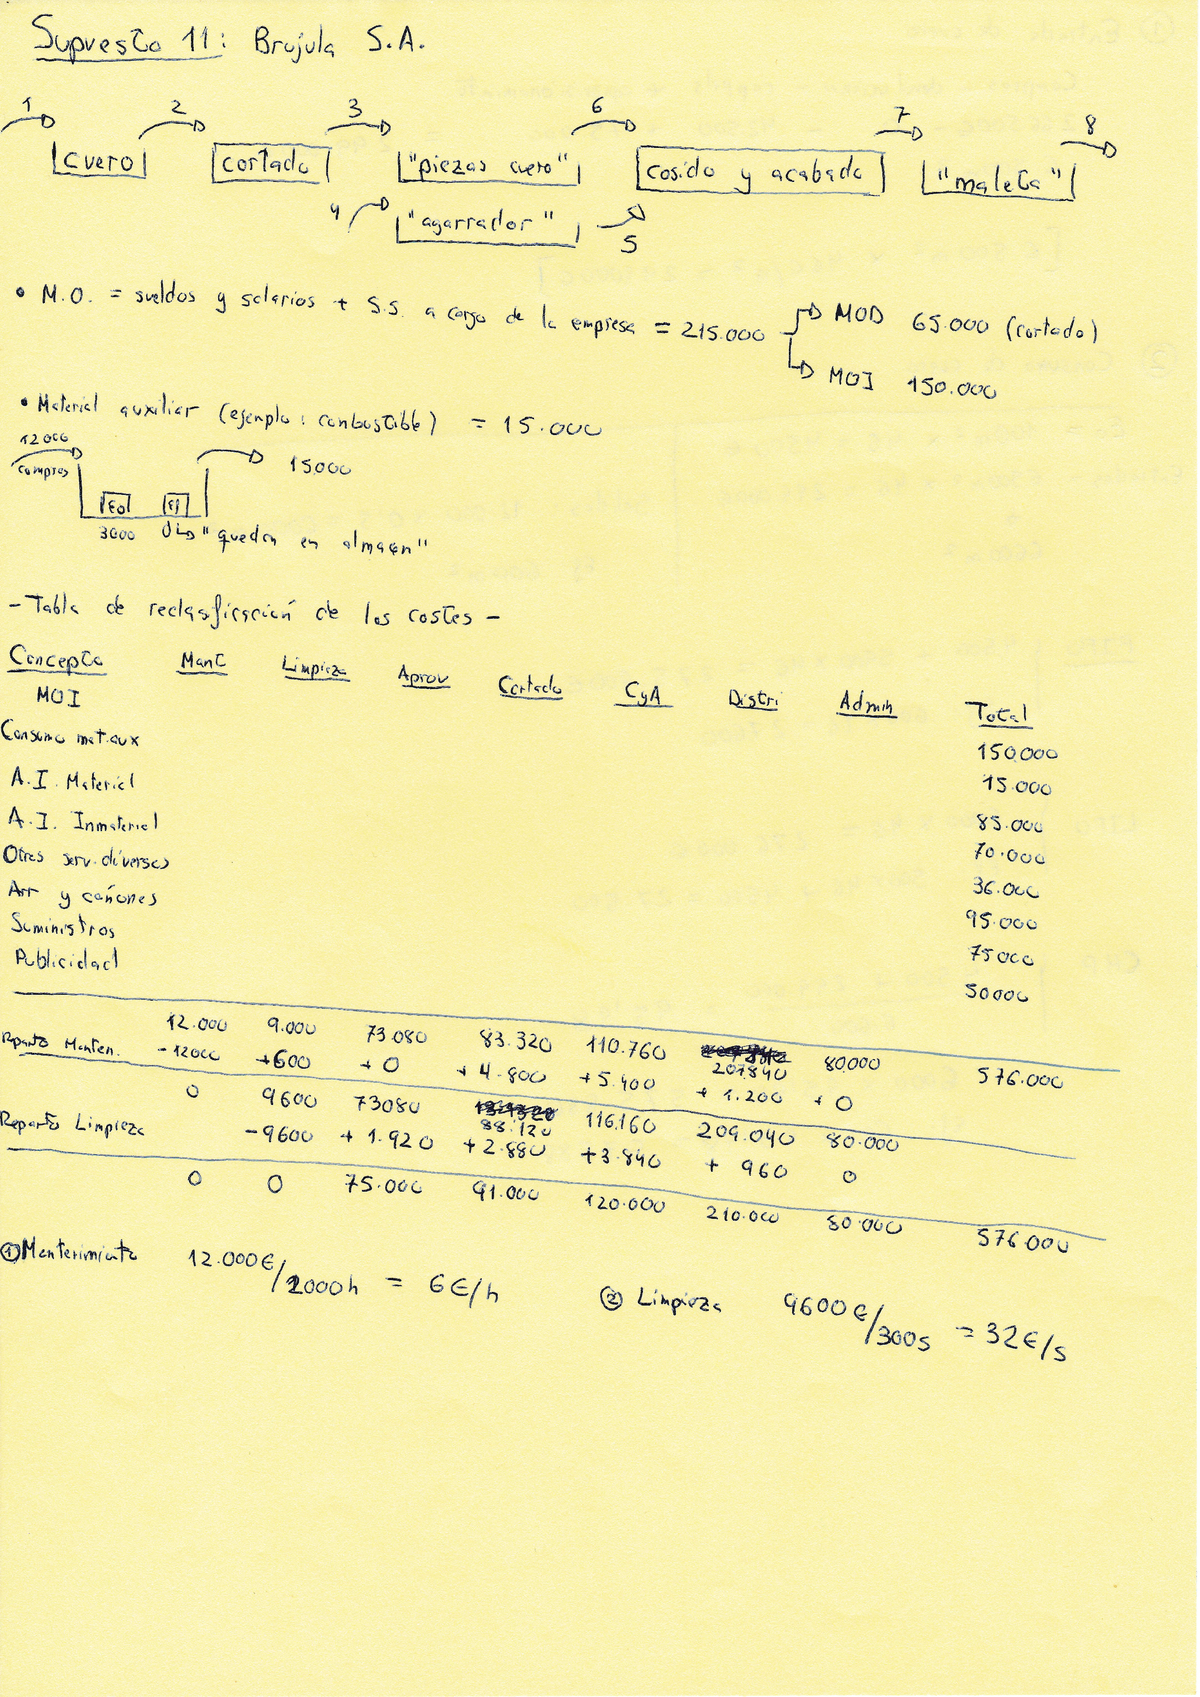 Supuesto 11: Brujula S.A.
1 2 3 6 7 8
cuero cortado "piezas cuero" cosido y acabado "maleta"
4 "agarrador" 5
• M.O. = sueldos y salarios + S.S. a cargo de la empresa = 215.000 MOD 65.000 (cortado)
MOI 150.000
• Material auxiliar (ejemplo: combustible) = 15.000
12000
compras 15000
Eo Ef
3000 0 "quedan en almacen"
- Tabla de reclasificación de los costes -
Concepto Mant Limpieza Aprov Cortado CyA Distri Admin Total
MOI 150.000
Consumo mat.aux 15.000
A.I. Material 85.000
A.I. Inmaterial 70.000
Otros serv. diversos 36.000
Arr y cañones 95.000
Suministros 75000
Publicidad 50000
12.000 9.000 73.080 83.320 110.760 207.840 80.000 576.000
Reparto Manten. -12000 +600 +0 +4.800 +5.400 +1.200 +0
0 9600 73080 88.120 116.160 209.040 80.000
Reparto Limpieza -9600 +1.920 +2.880 +3.840 +960 0
0 0 75.000 91.000 120.000 210.000 80.000 576.000
① Mantenimiento 12.000€/2000h = 6€/h
② Limpieza 9600€/300s = 32€/s